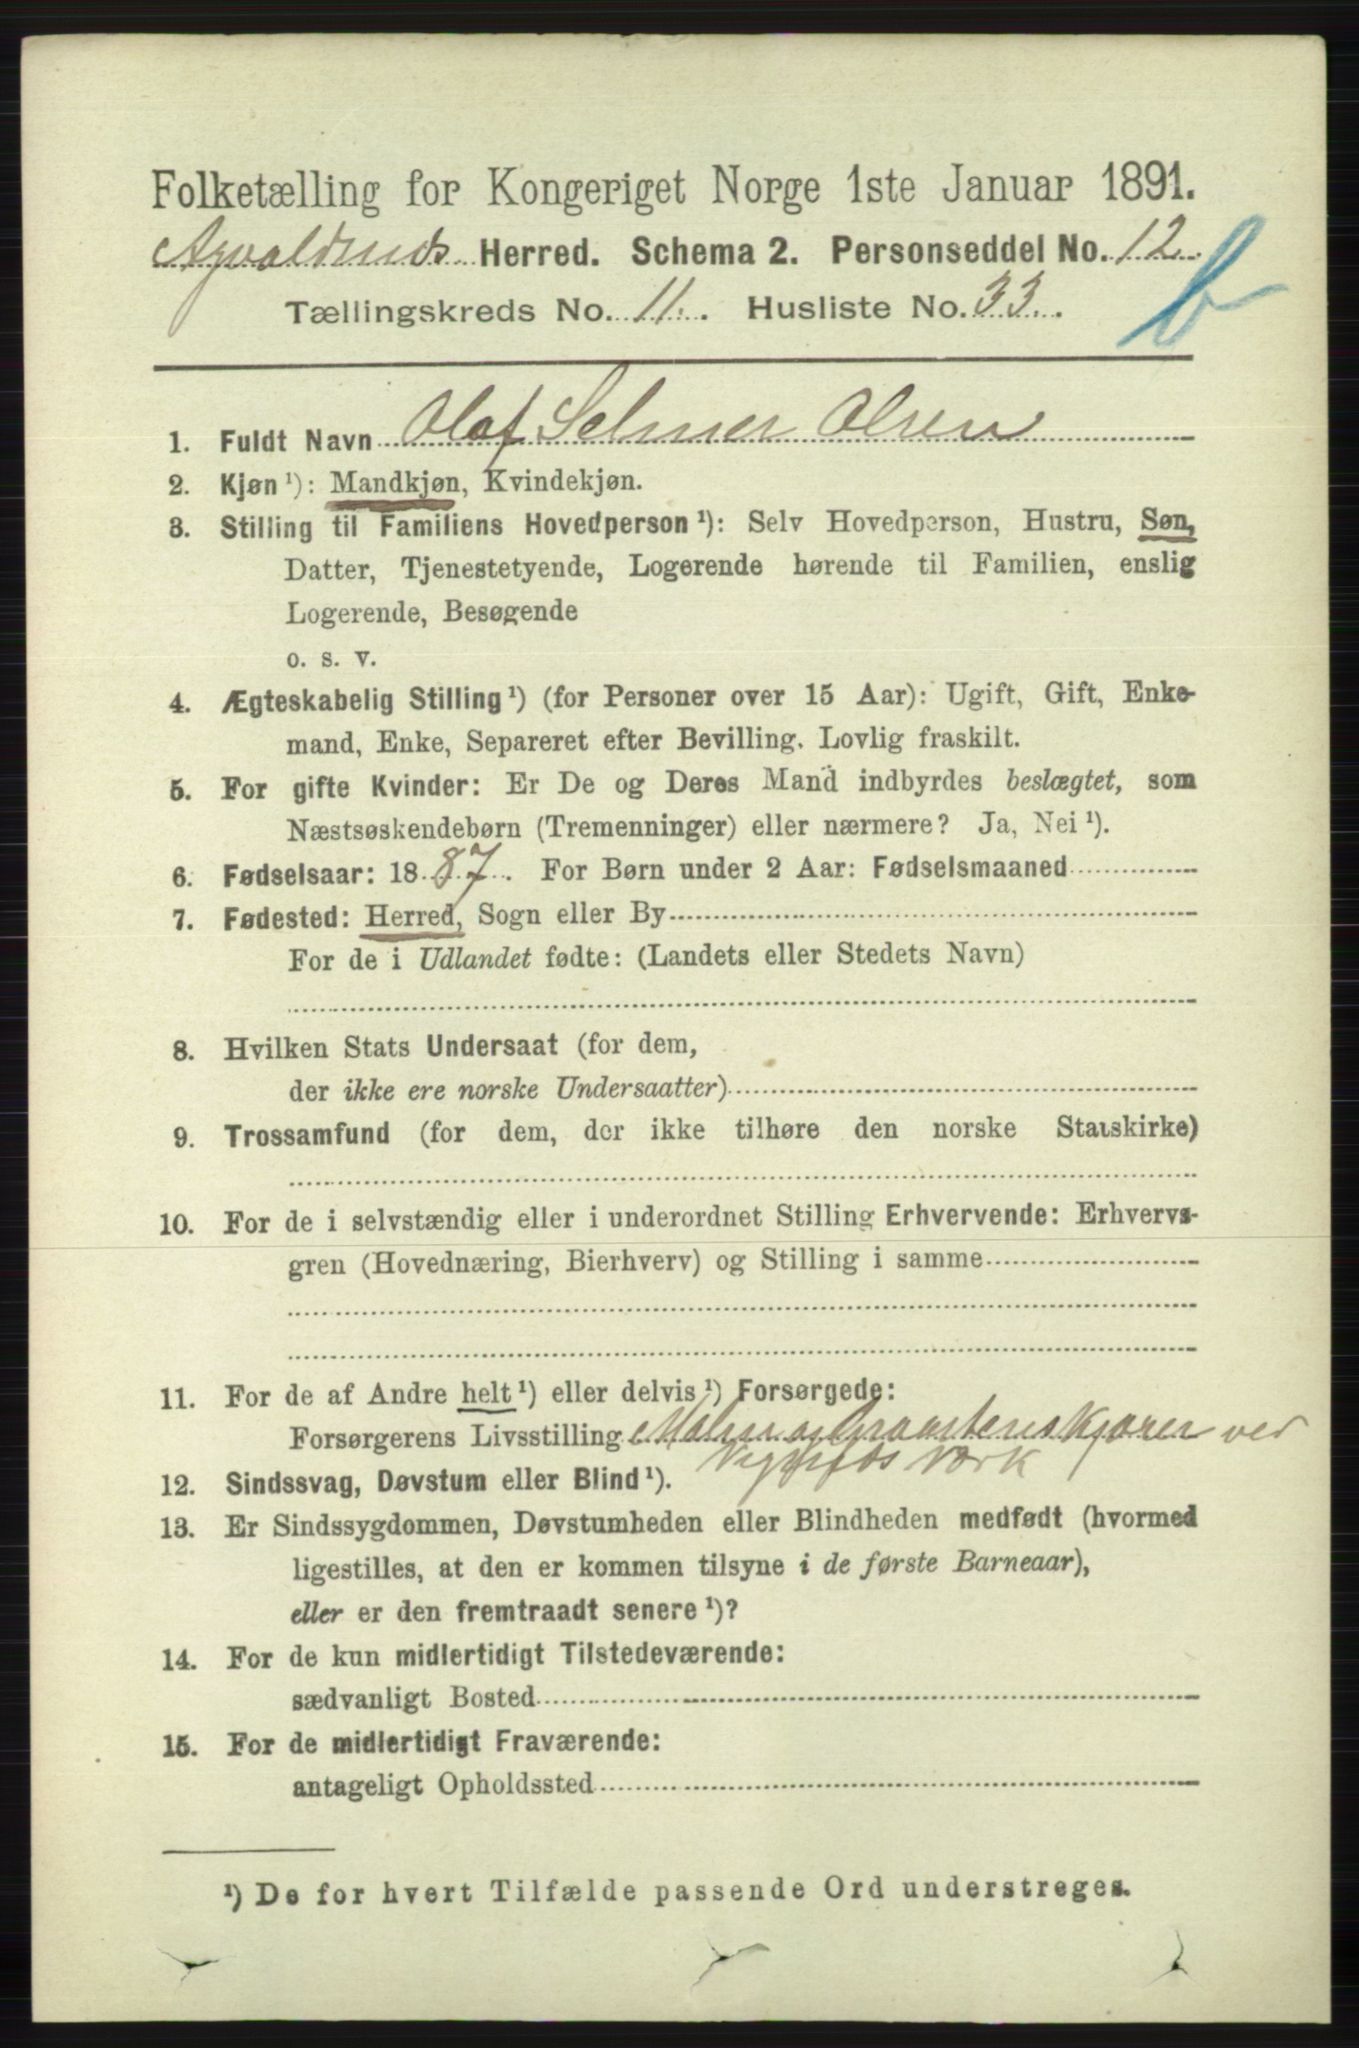 Folketælling for Kongeriget Norge 1ste Januar 1891.
Herred. Schema 2. Personseddel No. 12
b
Tællingskreds No. 11. Husliste No. 33
1. Fuldt Navn Olaf Selmer Olsen
2. Kjøn ¹): Mandkjøn, Kvindekjøn.
3. Stilling til Familiens Hovedperson ¹): Selv Hovedperson, Hustru, Søn,
Datter, Tjenestetyende, Logerende hørende til Familien, enslig
Logerende, Besøgende
o. s. v.
4. Ægteskabelig Stilling ¹) (for Personer over 15 Aar): Ugift, Gift, Enke-
mand, Enke, Separeret efter Bevilling. Lovlig fraskilt.
5. For gifte Kvinder: Er De og Deres Mand indbyrdes beslægtet, som
Næstsøskendebørn (Tremenninger) eller nærmere? Ja, Nei ¹).
6. Fødselsaar: 1887. For Børn under 2 Aar: Fødselsmaaned
7. Fødested: Herred, Sogn eller By
For de i Udlandet fødte: (Landets eller Stedets Navn)
8. Hvilken Stats Undersaat (for dem,
der ikke ere norske Undersaatter)
9. Trossamfund (for dem, der ikke tilhøre den norske Statskirke)
10. For de i selvstændig eller i underordnet Stilling Erhvervende: Erhvervs-
gren (Hovednæring, Bierhverv) og Stilling i samme
11. For de af Andre helt ¹) eller delvis ¹) Forsørgede:
Forsørgerens Livsstilling Malm og Graastenskjører ved
Værk
12. Sindssvag, Døvstum eller Blind ¹).
13. Er Sindssygdommen, Døvstumheden eller Blindheden medfødt (hvormed
ligestilles, at den er kommen tilsyne i de første Barneaar),
eller er den fremtraadt senere ¹)?
14. For de kun midlertidigt Tilstedeværende:
sædvanligt Bosted
15. For de midlertidigt Fraværende:
antageligt Opholdssted
¹) De for hvert Tilfælde passende Ord understreges.